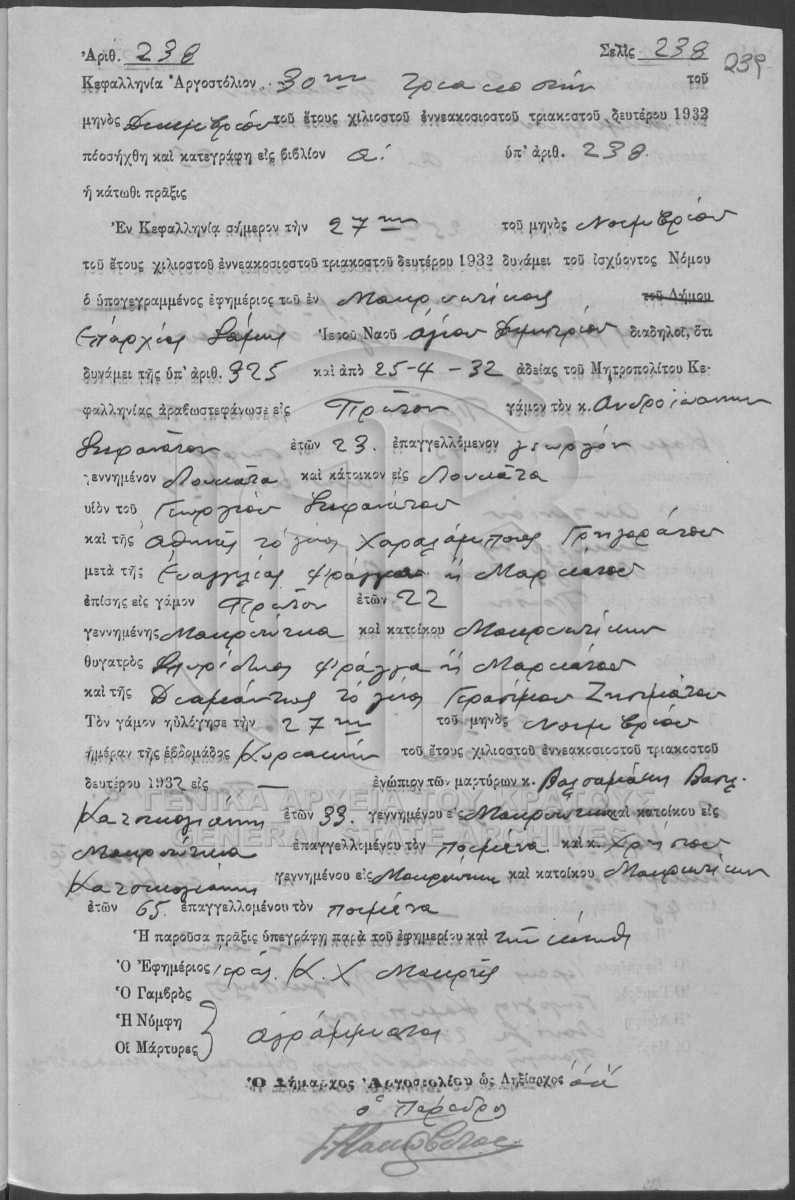 Ἀριθ. 238 Σελὶς 238 239
Κεφαλληνία Ἀργοστόλιον 30ην τριακοστὴν τοῦ
μηνὸς Δεκεμβρίου τοῦ ἔτους χιλιοστοῦ ἐννεακοσιοστοῦ τριακοστοῦ δευτέρου 1932
πέοσήχθη καὶ κατεγράφη εἰς βιβλίον α! ὑπ' ἀριθ. 238.
ἡ κάτωθι πρᾶξις
Ἐν Κεφαλληνίᾳ σήμερον τὴν 27ην τοῦ μηνὸς Νοεμβρίου
τοῦ ἔτους χιλιοστοῦ ἐννεακοσιοστοῦ τριακοστοῦ δευτέρου 1932 δυνάμει τοῦ ἰσχύοντος Νόμου
ὁ ὑπογεγραμμένος ἐφημέριος τοῦ ἐν Μακρυωτίκοις τοῦ Δήμου
Ἐπαρχίας Σάμης Ἱεροῦ Ναοῦ Ἁγίου Δημητρίου διαδηλοῖ, ὅτι
δυνάμει τῆς ὑπ' ἀριθ. 325 καὶ ἀπὸ 25-4-32 ἀδείας τοῦ Μητροπολίτου Κε-
φαλληνίας ἀραβωστεφάνωσε εἰς Πρῶτον γάμον τὸν κ. Ανδρο
Στεφανᾶτον ἐτῶν 23. ἐπαγγελλόμενον γεωργόν
γεννημένον Λουκᾶτα καὶ κάτοικον εἰς Λουκᾶτα
υἱὸν τοῦ Γεωργίου Στεφανάτου
καὶ τῆς Ἀθηνᾶς τὸ γένος Χαραλάμπους Γρηγοράτου
μετὰ τῆς Εὐαγγελίας Φράγγα ἢ Μαρκάτου
ἐπίσης εἰς γάμον Πρῶτον ἐτῶν 22
γεννημένης Μακρυώτικα καὶ κατοίκου Μακρυωτίκων
θυγατρὸς Σπυρίδωνος Φράγγα ἢ Μαρκάτου
καὶ τῆς Διαμάντως τὸ γένος Γερασίμου Ζησιμάτου
Τὸν γάμον ηὐλόγησε τὴν 27ην τοῦ μηνὸς Νοεμβρίου
ἡμέραν τῆς ἑβδομάδος Κυριακὴν τοῦ ἔτους χιλιοστοῦ ἐννεακοσιοστοῦ τριακοστοῦ
δευτέρου 1932 εἰς — ἐνώπιον τῶν μαρτύρων κ. Βαλσαμάκη Βασιλ.
Κατσικογιάννη ἐτῶν 33. γεννημένου εἰς Μακρυώτικα καὶ κατοίκου εἰς
Μακρυώτικα ἐπαγγελλομένου τὸν ποιμένα καὶ κ. Χρήστου
Κατσικογιάννη γεννημένου εἰς Μακρυώτικα καὶ κατοίκου Μακρυωτίκων
ἐτῶν 65. ἐπαγγελλομένου τὸν ποιμένα
Ἡ παροῦσα πρᾶξις ὑπεγράφη παρὰ τοῦ ἐφημερίου καὶ
Ὁ Ἐφημέριος Κ. Χ Μακρῆς
Ὁ Γαμβρὸς
Ἡ Νύμφη
Οἱ Μάρτυρες ἀγράμματοι
Ὁ Δήμαρχος Ἀργοστολίου ὡς Ληξίαρχος
ὁ Πάρεδρος
ΓΕΝΙΚΑ ΑΡΧΕΙΑ ΤΟΥ ΚΡΑΤΟΥΣ
GENERAL STATE ARCHIVES